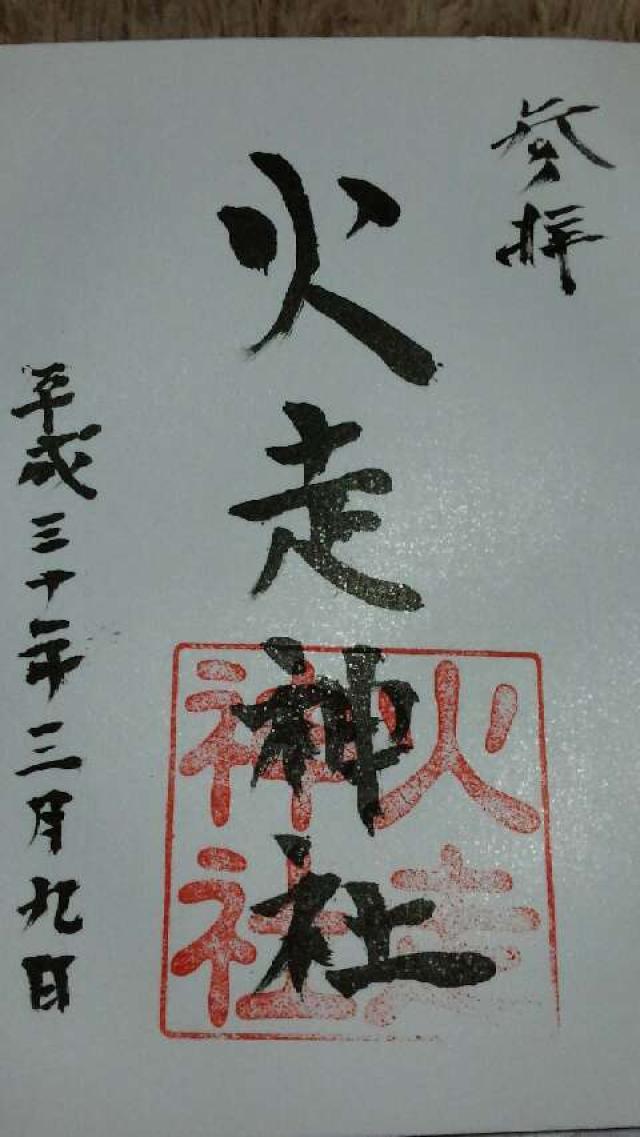 参拝
火走神社
火走神社
平成三十年三月九日